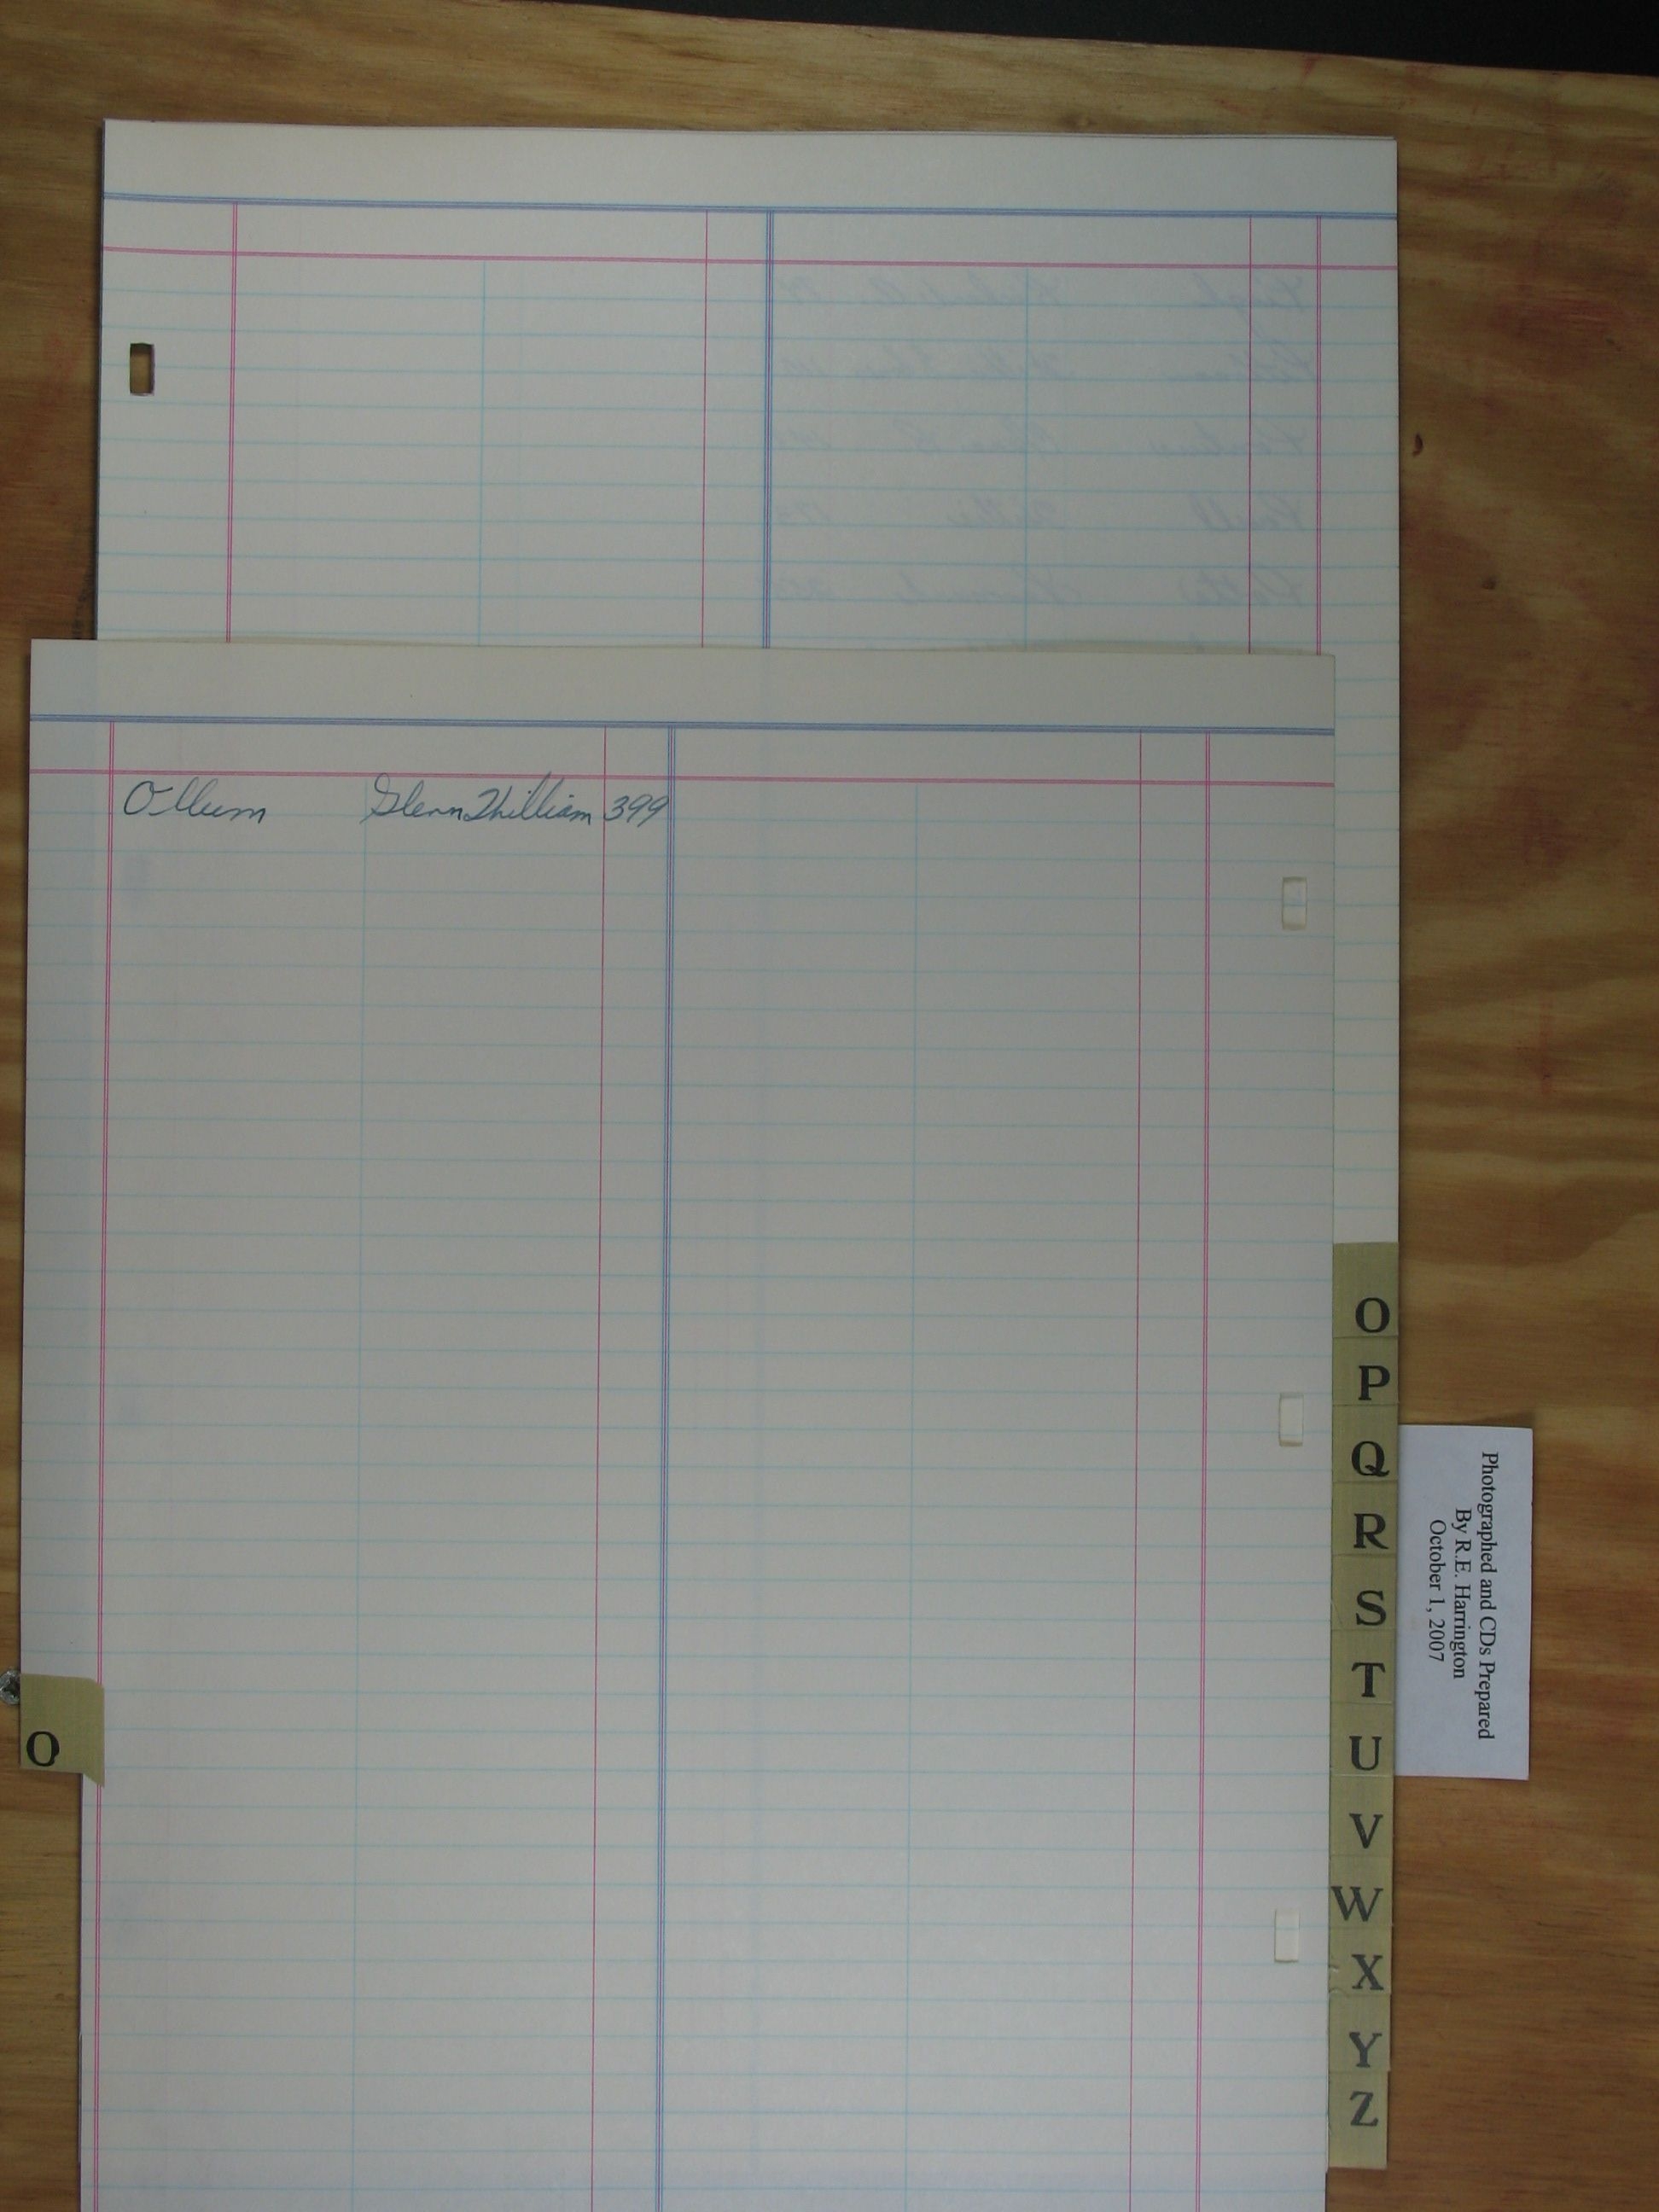 Ollum Glenn William 399
O
O
P
Q
R
S
T
U
V
W
X
Y
Z
Photographed and CDs Prepared
By R.E. Harrington
October 1, 2007